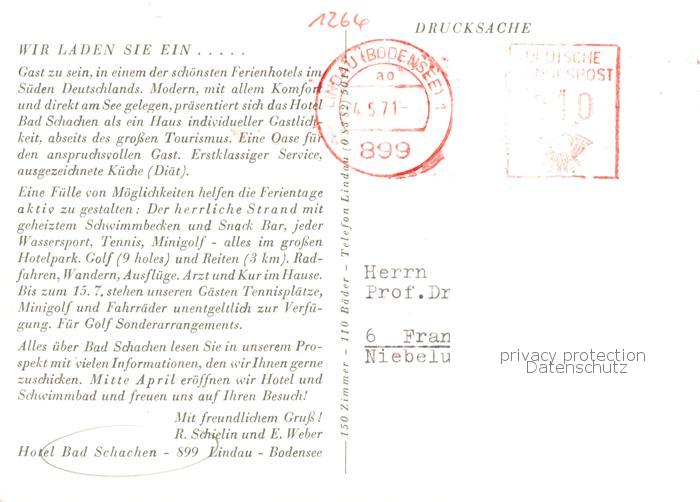 1264
DRUCKSACHE
WIR LADEN SIE EIN . . . . .
Gast zu sein, in einem der schönsten Ferienhotels im
Süden Deutschlands. Modern, mit allem Komfort
und direkt am See gelegen, präsentiert sich das Hotel
Bad Schachen als ein Haus individueller Gastlich-
keit, abseits des großen Tourismus. Eine Oase für
den anspruchsvollen Gast. Erstklassiger Service,
ausgezeichnete Küche (Diät).
Eine Fülle von Möglichkeiten helfen die Ferientage
aktiv zu gestalten: Der herrliche Strand mit
geheiztem Schwimmbecken und Snack Bar, jeder
Wassersport, Tennis, Minigolf - alles im großen
Hotelpark. Golf (9 holes) und Reiten (3 km). Rad-
fahren, Wandern, Ausflüge. Arzt und Kur im Hause.
Bis zum 15. 7. stehen unseren Gästen Tennisplätze,
Minigolf und Fahrräder unentgeltlich zur Verfü-
gung. Für Golf Sonderarrangements.
Alles über Bad Schachen lesen Sie in unserem Pro-
spekt mit vielen Informationen, den wir Ihnen gerne
zuschicken. Mitte April eröffnen wir Hotel und
Schwimmbad und freuen uns auf Ihren Besuch!
Mit freundlichem Gruß!
R. Schielin und E. Weber
Hotel Bad Schachen - 899 Lindau - Bodensee
150 Zimmer - 110 Bäder - Telefon Lindau (0 83 82) 5011
LINDAU (BODENSEE) 1
ao
4.5.71-
899
DEUTSCHE
BUNDESPOST
010
Herrn
Prof.Dr
6 Fran
Niebelu
privacy protection
Datenschutz